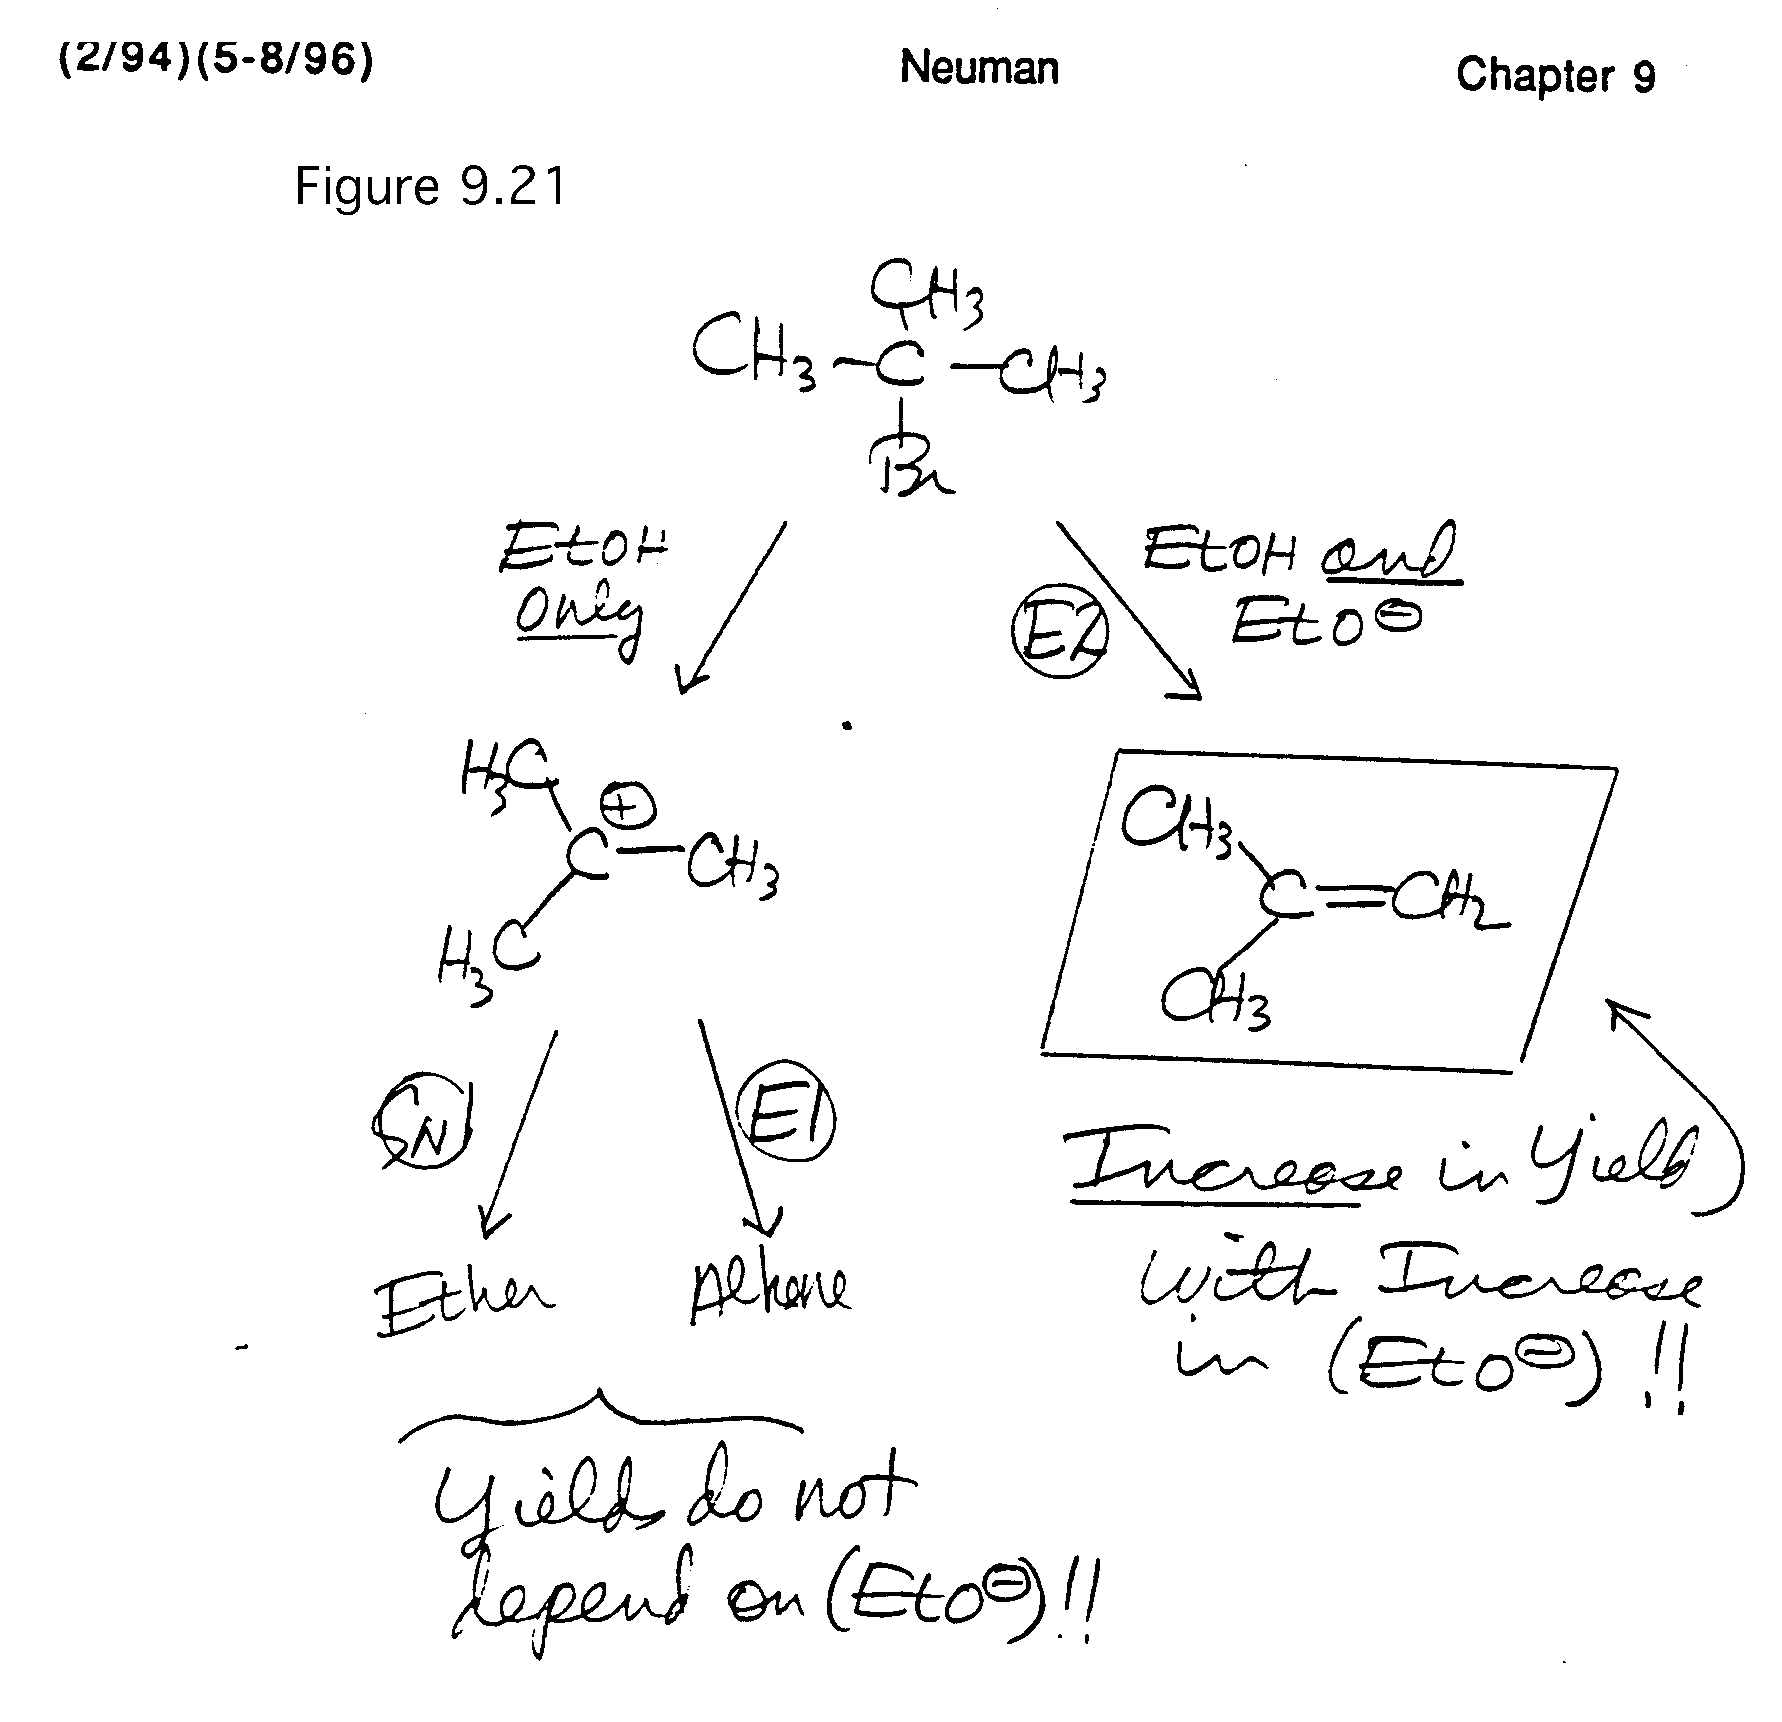 (2/94)(5-8/96) Neuman Chapter 9
Figure 9.21
CH3
CH3-C-CH3
Br
EtOH only
EtOH and EtO⊖
E2
H3C
⊕
C-CH3
H3C
CH3
C=CH2
CH3
SN1
E1
Ether
Alkene
Increase in Yield
with Increase
in (EtO⊖) !!
Yields do not
depend on (EtO⊖)!!